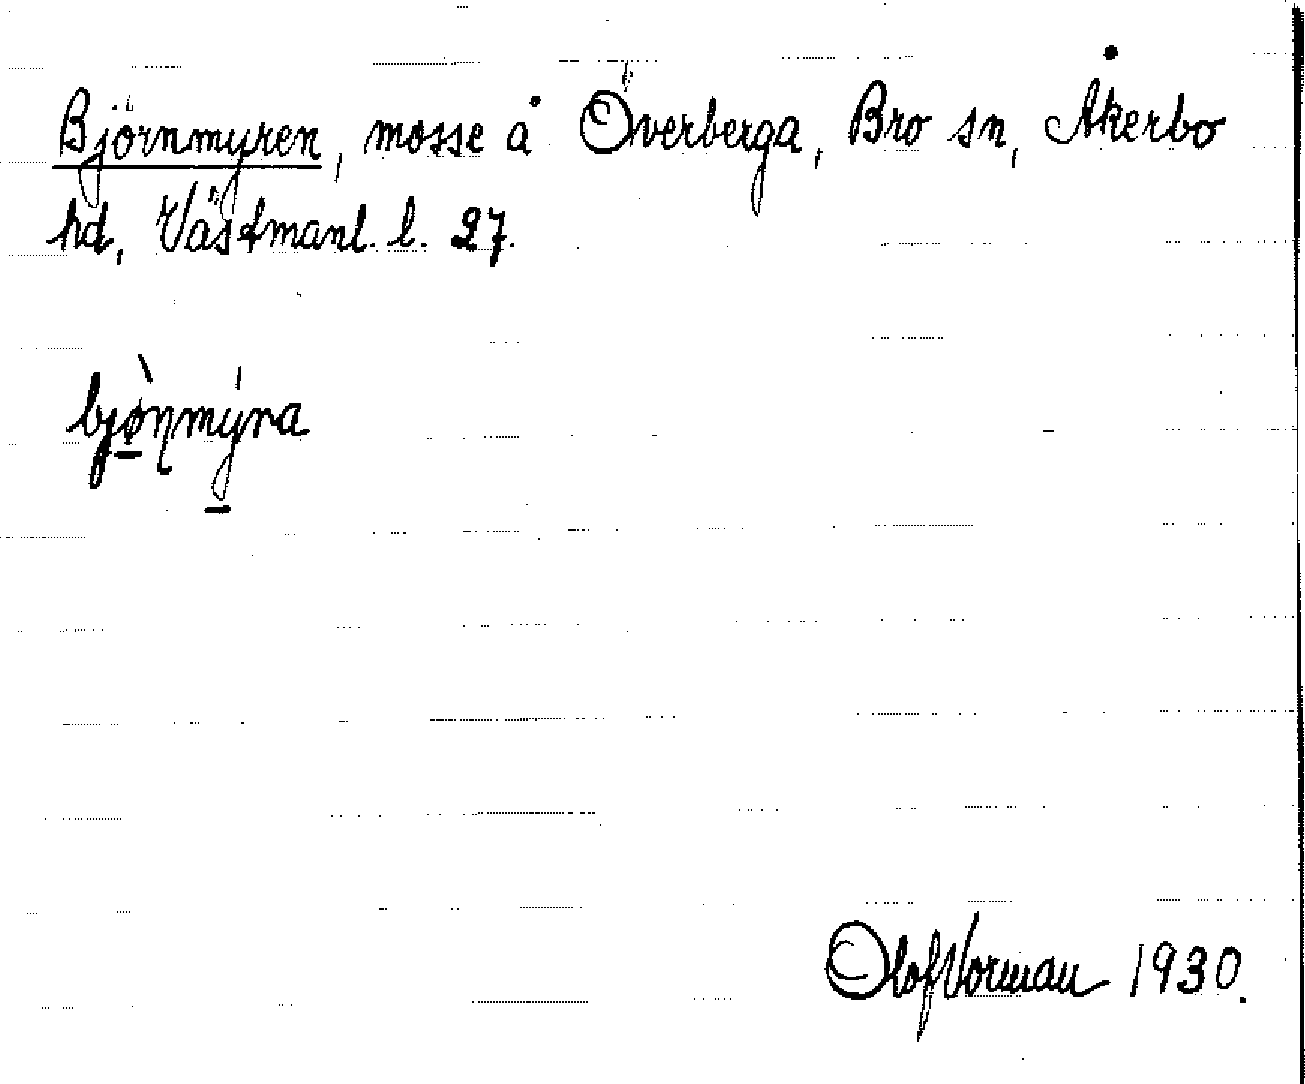 Björnmyren, mosse å Överberga, Bro sn, Åkerbo
hd, Västmanl. l. 27.
bjø̠̀ɳmý̠ra
Olof Vorman 1930.